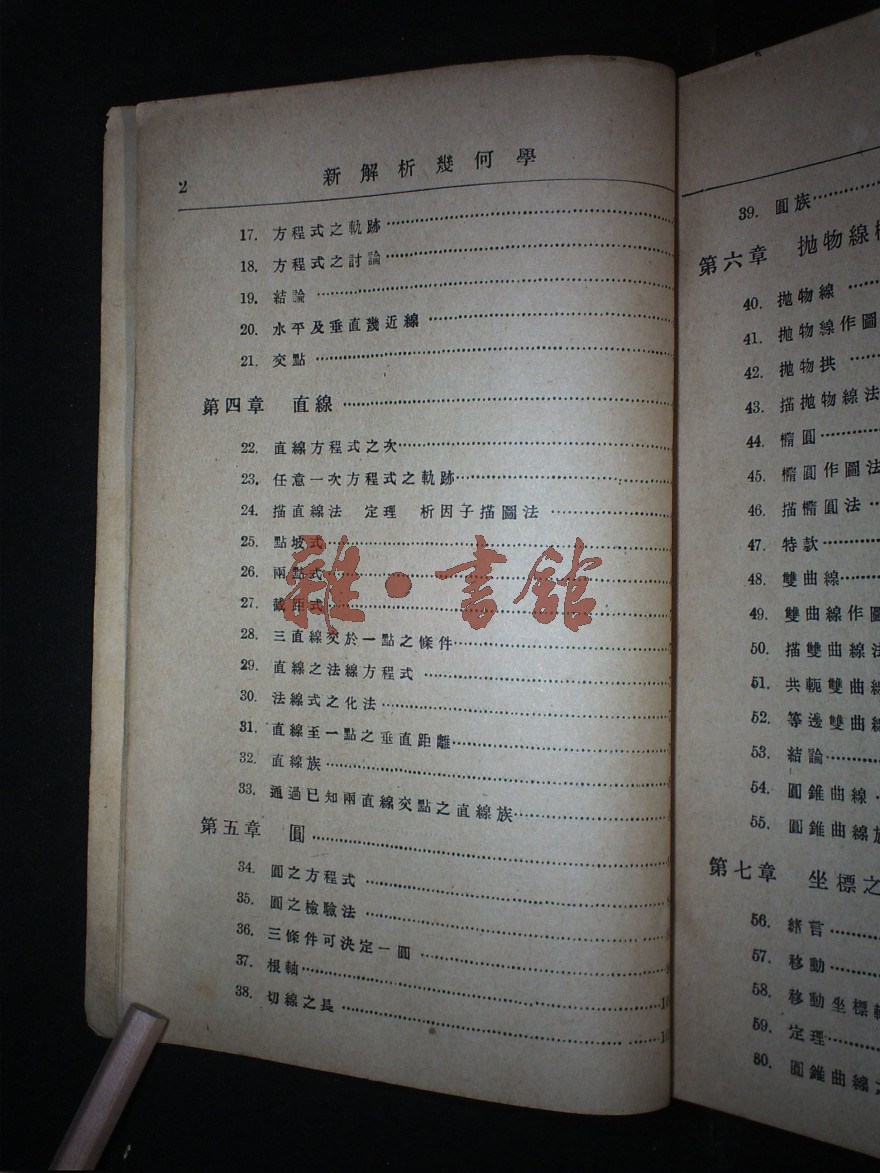 2 新解析幾何學
17. 方程式之軌跡
18. 方程式之討論
19. 結論
20. 水平及垂直幾近線
21. 交點
第四章 直線
22. 直線方程式之次
23. 任意一次方程式之軌跡
24. 描直線法 定理 析因子描圖法
25. 點坡式
26. 兩點式
27. 截距式
28. 三直線交於一點之條件
29. 直線之法線方程式
30. 法線式之化法
31. 直線至一點之垂直距離
32. 直線族
33. 通過已知兩直線交點之直線族
第五章 圓
34. 圓之方程式
35. 圓之檢驗法
36. 三條件可決定一圓
37. 根軸
38. 切線之長
雜·書館
39. 圓族
第六章 拋物線
40. 拋物線
41. 拋物線作圖
42. 拋物拱
43. 描拋物線法
44. 橢圓
45. 橢圓作圖法
46. 描橢圓法
47. 特款
48. 雙曲線
49. 雙曲線作圖
50. 描雙曲線法
51. 共軛雙曲線
52. 等邊雙曲線
53. 結論
54. 圓錐曲線
55. 圓錐曲線族
第七章 坐標之
56. 緒言
57. 移動
58. 移動坐標軸
59. 定理
60. 圓錐曲線之